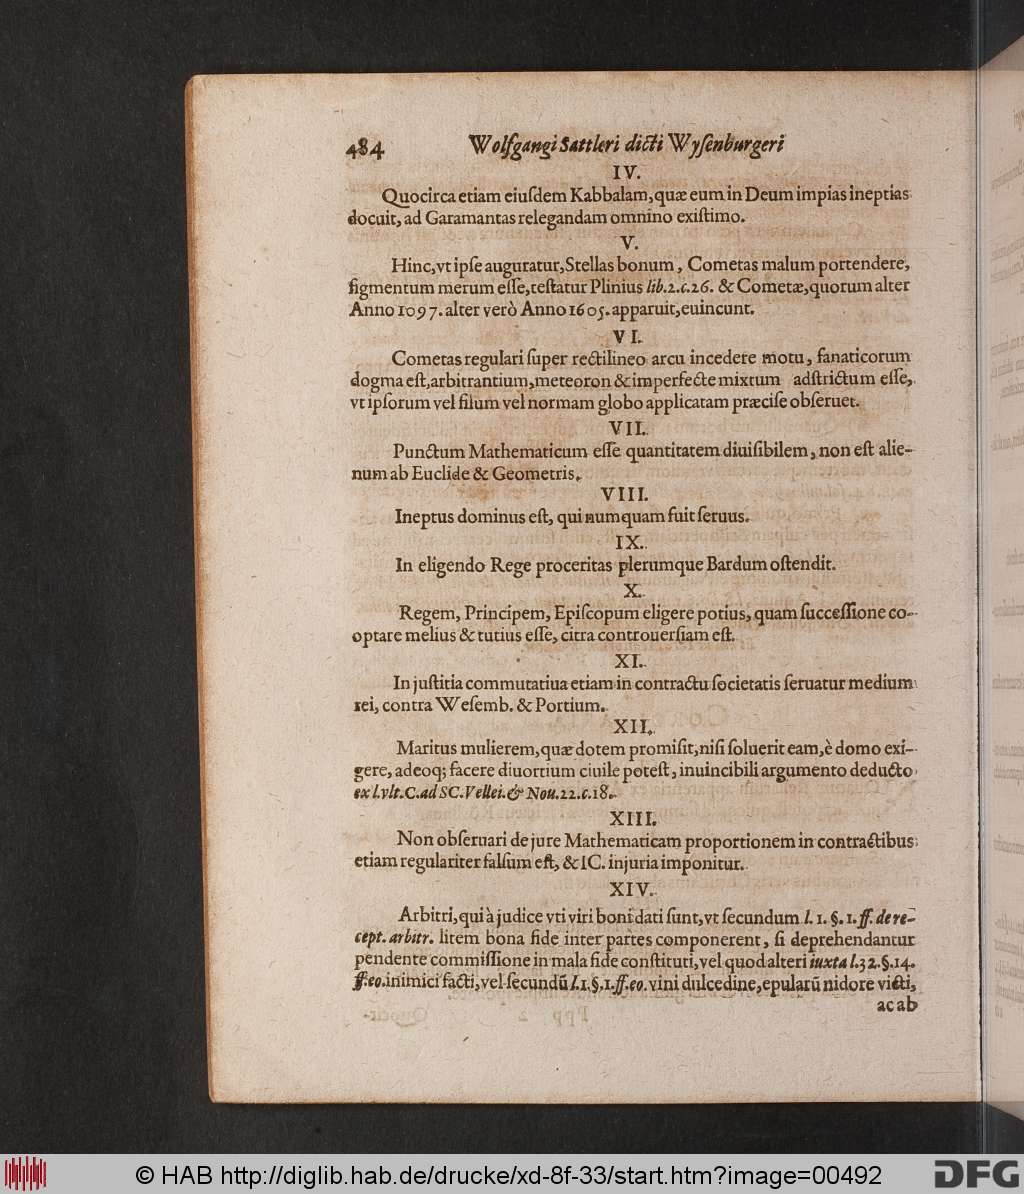 484 Wolfgangi Sattleri dicti Wyſenburgeri
IV.
Quocirca etiam eiuſdem Kabbalam, quæ eum in Deum impias ineptias
docuit, ad Garamantas relegandam omnino exiſtimo.
V.
Hinc, vt ipſe auguratur, Stellas bonum, Cometas malum portendere,
figmentum merum eſſe, teſtatur Plinius lib. 2. c. 26. & Cometæ, quorum alter
Anno 1097. alter verò Anno 1605. apparuit, euincunt.
VI.
Cometas regulari ſuper rectilineo arcu incedere motu, fanaticorum
dogma eſt, arbitrantium, meteoron & imperfecte mixtum adſtrictum eſſe,
vt ipſorum vel filum vel normam globo applicatam præciſe obſeruet.
VII.
Punctum Mathematicum eſſe quantitatem diuiſibilem, non eſt alie-
num ab Euclide & Geometris.
VIII.
Ineptus dominus eſt, qui numquam fuit ſeruus.
IX.
In eligendo Rege proceritas plerumque Bardum oſtendit.
X.
Regem, Principem, Epiſcopum eligere potius, quam ſucceſſione co-
optare melius & tutius eſſe, citra controuerſiam eſt.
XI.
In juſtitia commutatiua etiam in contractu ſocietatis ſeruatur medium
rei, contra Weſemb. & Portium.
XII.
Maritus mulierem, quæ dotem promiſit, niſi ſoluerit eam, è domo exi-
gere, adeoq; facere diuortium ciuile poteſt, inuincibili argumento deducto
ex l. vlt. C. ad SC. Vellei. & Nou. 22. c. 18.
XIII.
Non obſeruari de jure Mathematicam proportionem in contractibus
etiam regulariter falſum eſt, & IC. injuria imponitur.
XIV.
Arbitri, qui à judice vti viri boni dati ſunt, vt ſecundum l. 1. §. 1. ff. de re-
cept. arbitr. litem bona fide inter partes componerent, ſi deprehendantur
pendente commiſſione in mala fide conſtituti, vel quod alteri iuxta l. 32. §. 14.
ff. eo. inimici facti, vel ſecundũ l. 1. §. 1. ff. eo. vini dulcedine, epularũ nidore victi,
ac ab
© HAB http://diglib.hab.de/drucke/xd-8f-33/start.htm?image=00492
DFG